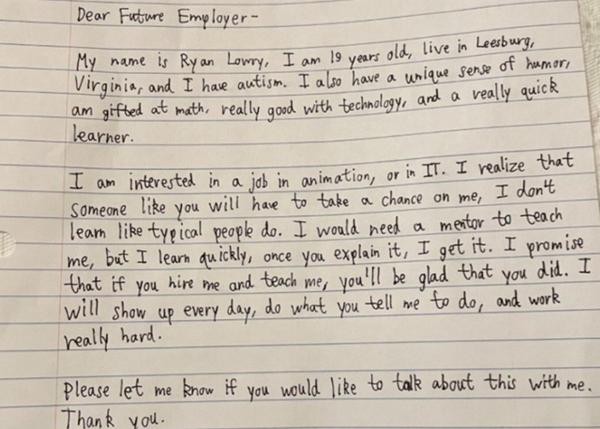 Dear Future Employer-
My name is Ryan Lowry, I am 19 years old, live in Leesburg,
Virginia, and I have autism. I also have a unique sense of humor,
am gifted at math, really good with technology, and a really quick
learner.
I am interested in a job in animation, or in IT. I realize that
someone like you will have to take a chance on me, I don't
learn like typical people do. I would need a mentor to teach
me, but I learn quickly, once you explain it, I get it. I promise
that if you hire me and teach me, you'll be glad that you did. I
will show up every day, do what you tell me to do, and work
really hard.
Please let me know if you would like to talk about this with me.
Thank you.